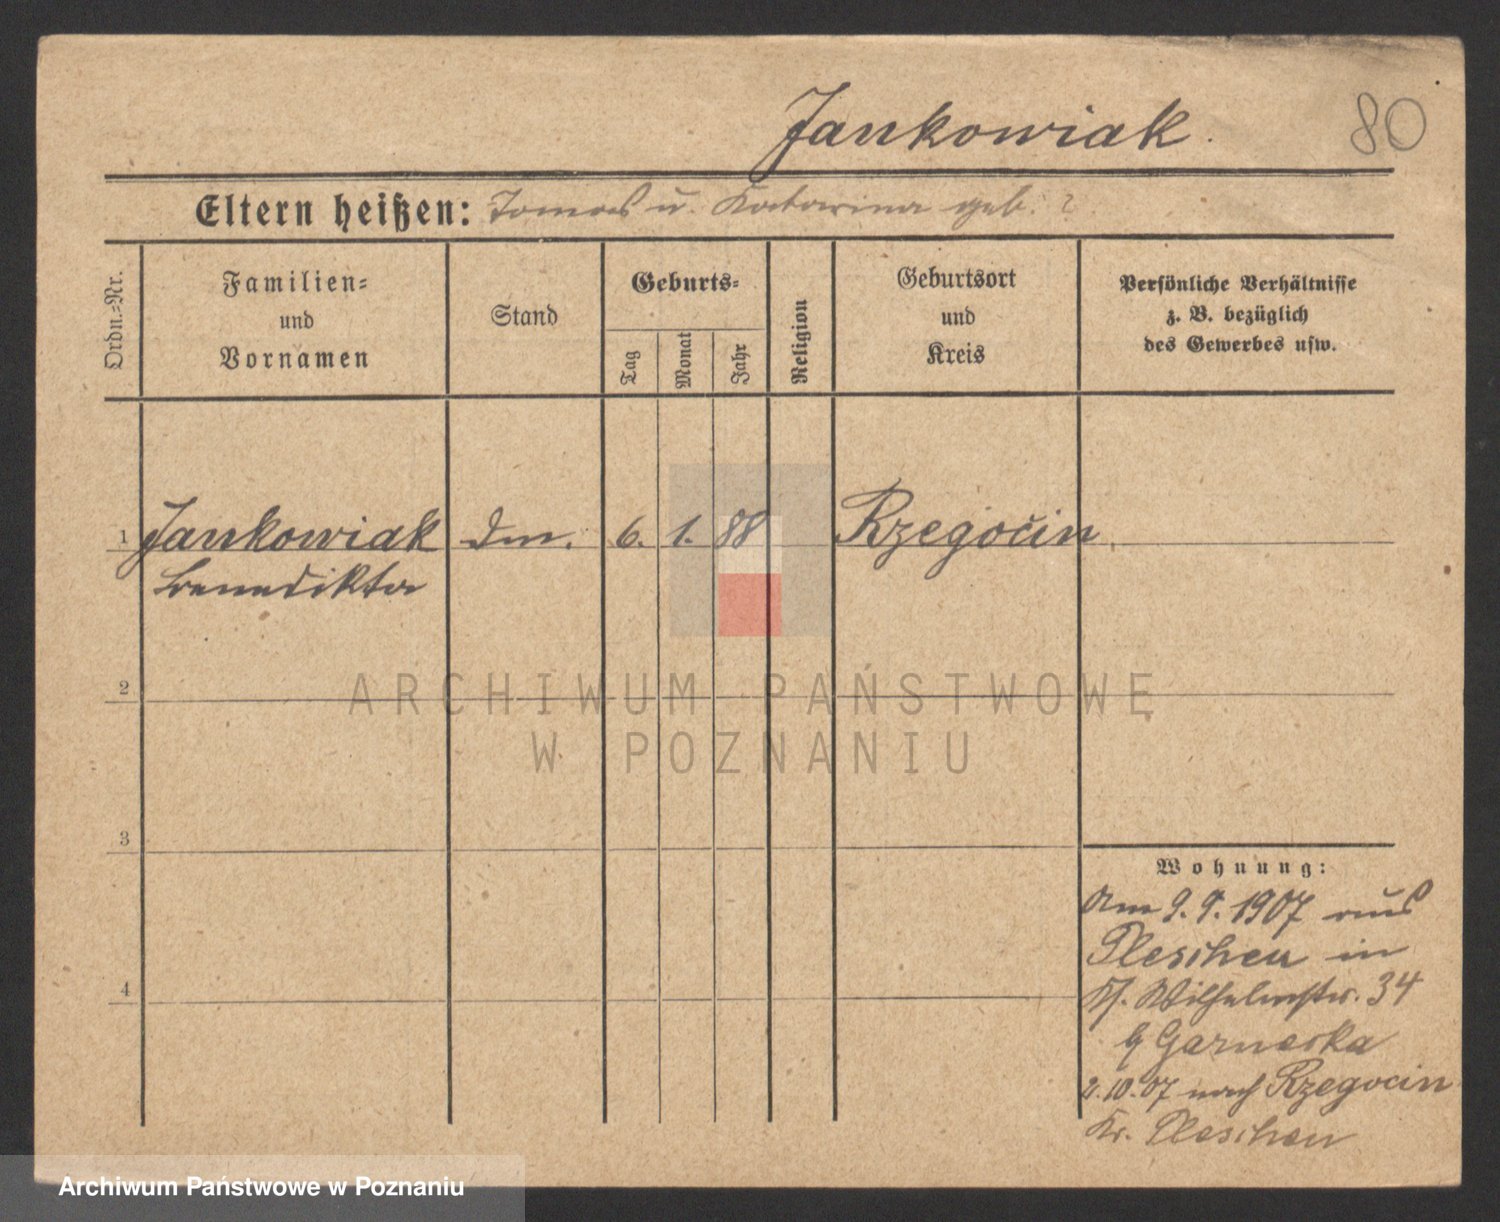 Jankowiak.
80
Eltern heißen: Tomas u. Katarina geb. ?
Ordn.-Nr.
Familien-
und
Vornamen
Stand
Geburts-
Tag
Monat
Jahr
Religion
Geburtsort
und
Kreis
Persönliche Verhältnisse
z. B. bezüglich
des Gewerbes usw.
1 Jankowiak Dm. 6. 1. 88 Rzegocin
Benedikta
2
ARCHIWUM PAŃSTWOWE
W POZNANIU
3
Wohnung:
Am 9. 9. 1907 aus
Pleschen in
Wilhelmstr. 34
Garneska
2. 10. 07 nach Rzegocin
Kr. Pleschen
4
Archiwum Państwowe w Poznaniu